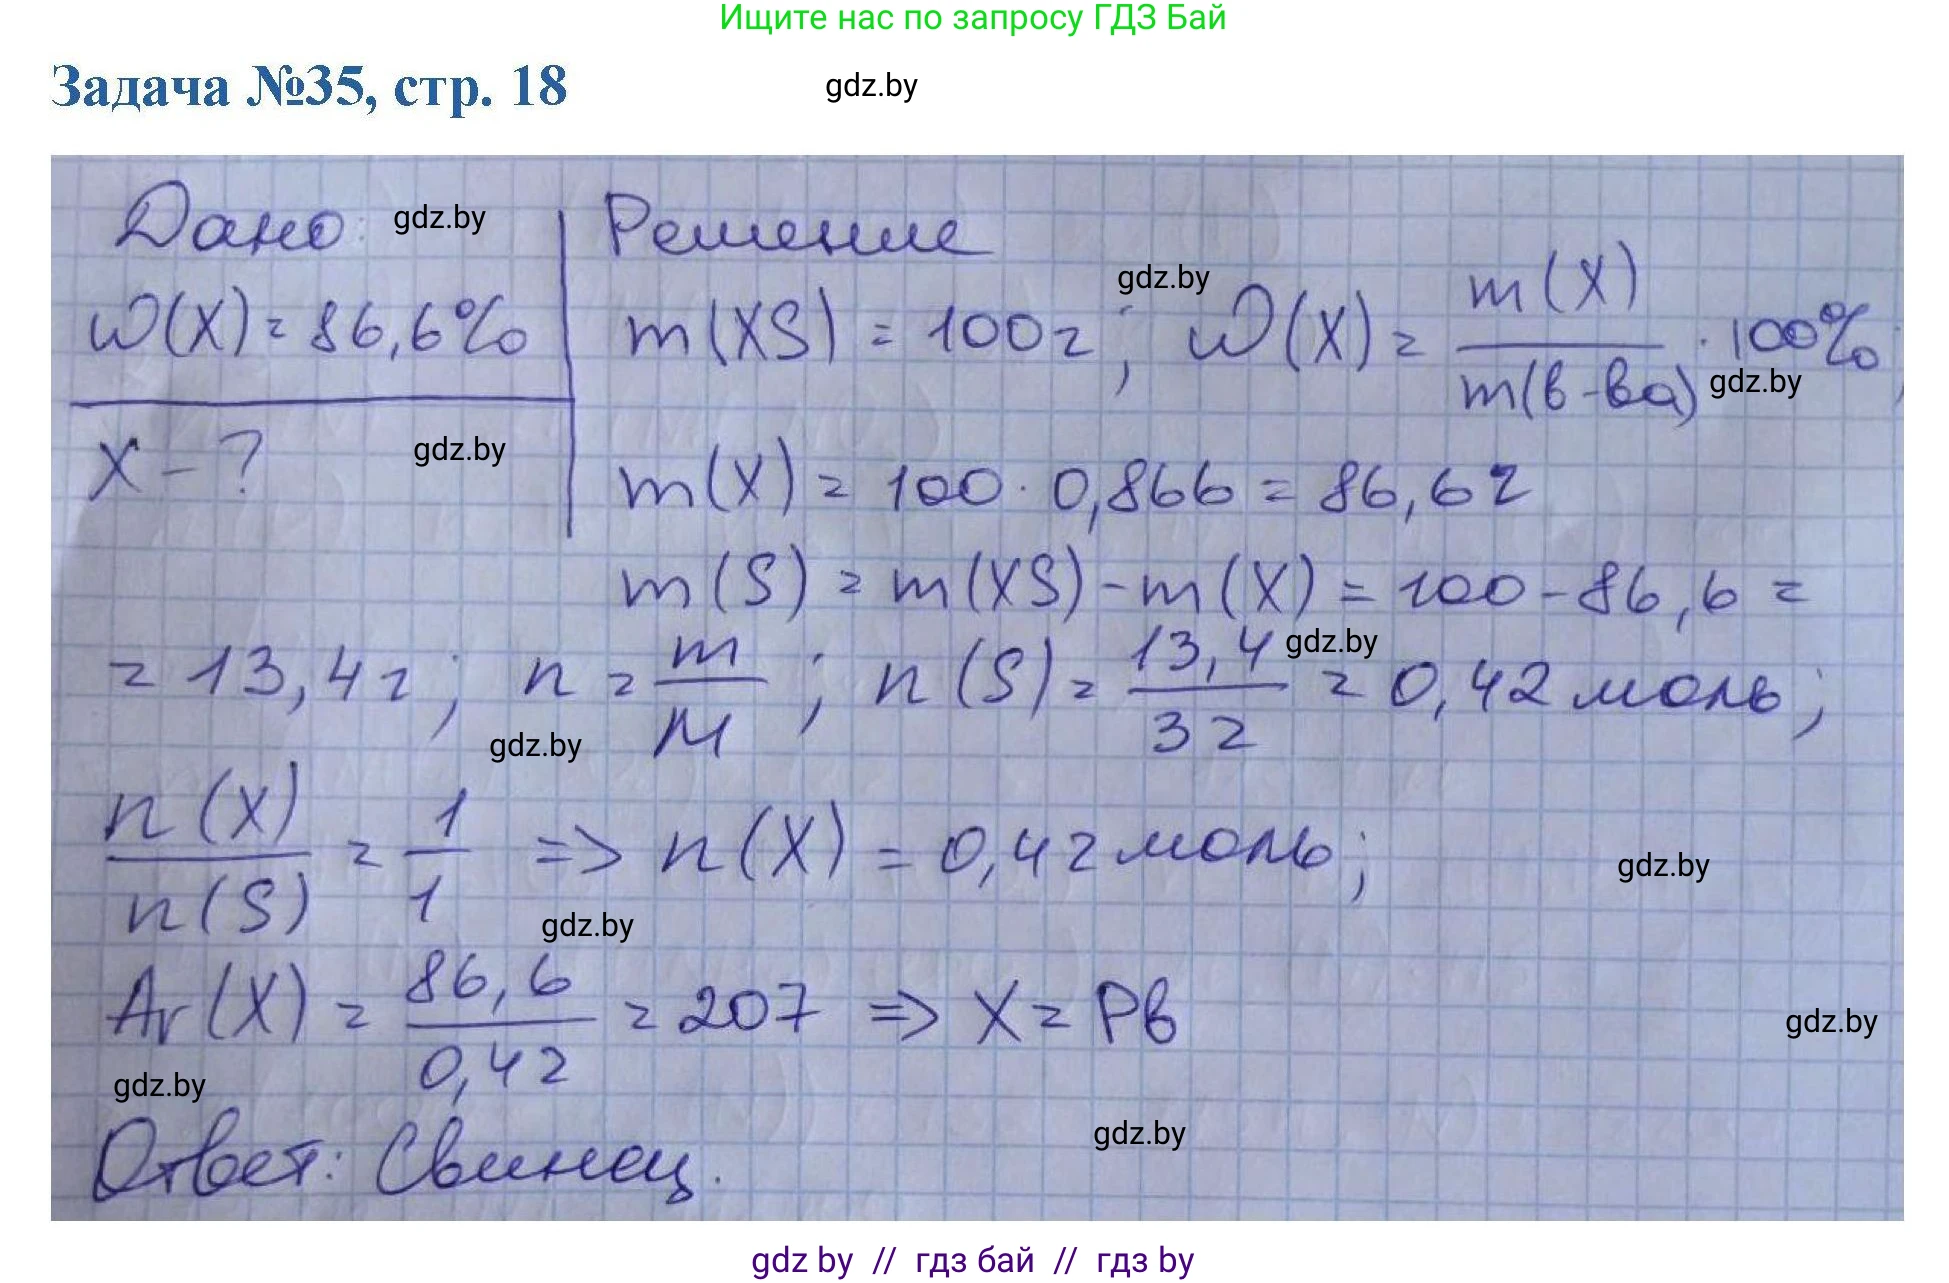 Ищите нас по запросу ГДЗ Бай
Задача №35, стр. 18
gdz.by
Дано: gdz.by
Решение
ω(X) = 86,6%
m(XS) = 100г; ω(X) = m(X) / m(в-ва) · 100%;
gdz.by
gdz.by
X - ?
gdz.by
m(X) = 100 · 0,866 = 86,6г
m(S) = m(XS) - m(X) = 100 - 86,6 =
= 13,4г; n = m / M; n(S) = 13,4 / 32 = 0,42 моль;
gdz.by
gdz.by
n(X) / n(S) = 1 / 1 => n(X) = 0,42 моль;
gdz.by
gdz.by
Ar(X) = 86,6 / 0,42 = 207 => X = Pb
gdz.by
gdz.by
Ответ: Свинец.
gdz.by
gdz by // гдз бай // гдз by